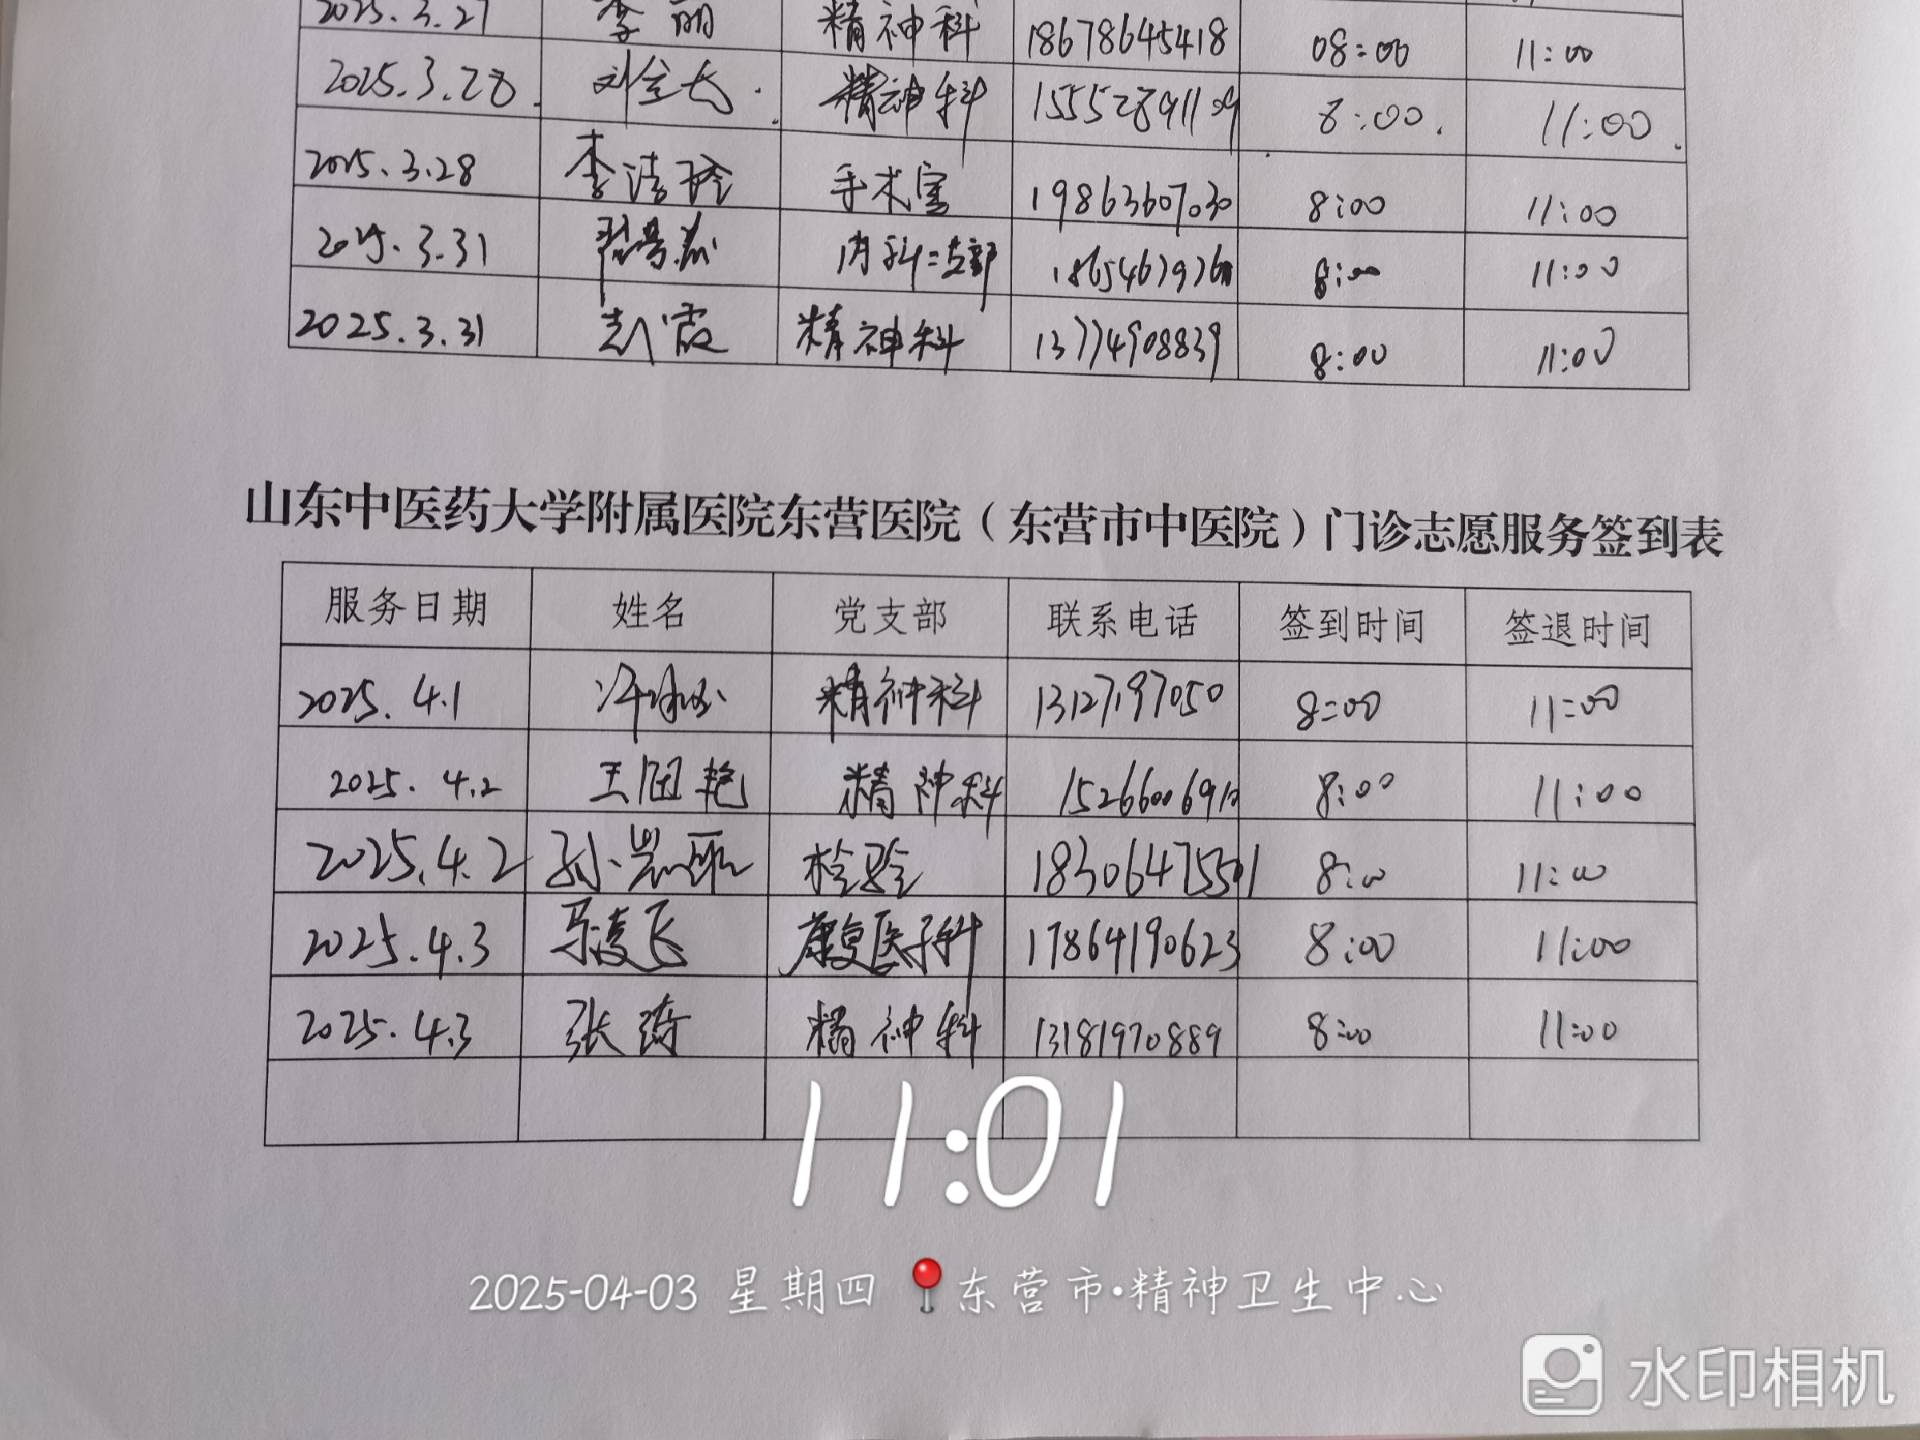 2025.3.27 李丽 精神科 18678645418 08:00 11:00
2025.3.28. 刘金长 精神科 15552891109 8:00. 11:00.
2025.3.28 李清玲 手术室 19863607030 8:00 11:00
2025.3.31 内科二支部 8:00 11:00
2025.3.31 赵霞 精神科 13774908839 8:00 11:00
山东中医药大学附属医院东营医院（东营市中医院）门诊志愿服务签到表
服务日期 姓名 党支部 联系电话 签到时间 签退时间
2025.4.1 精神科 13127197050 8:00 11:00
2025.4.2 王国艳 精神科 8:00 11:00
2025.4.2 检验 18306475501 8:00 11:00
2025.4.3 马凌飞 康复医学科 17864190623 8:00 11:00
2025.4.3 张琦 精神科 13181970889 8:00 11:00
11:01
2025-04-03 星期四 东营市·精神卫生中心
水印相机